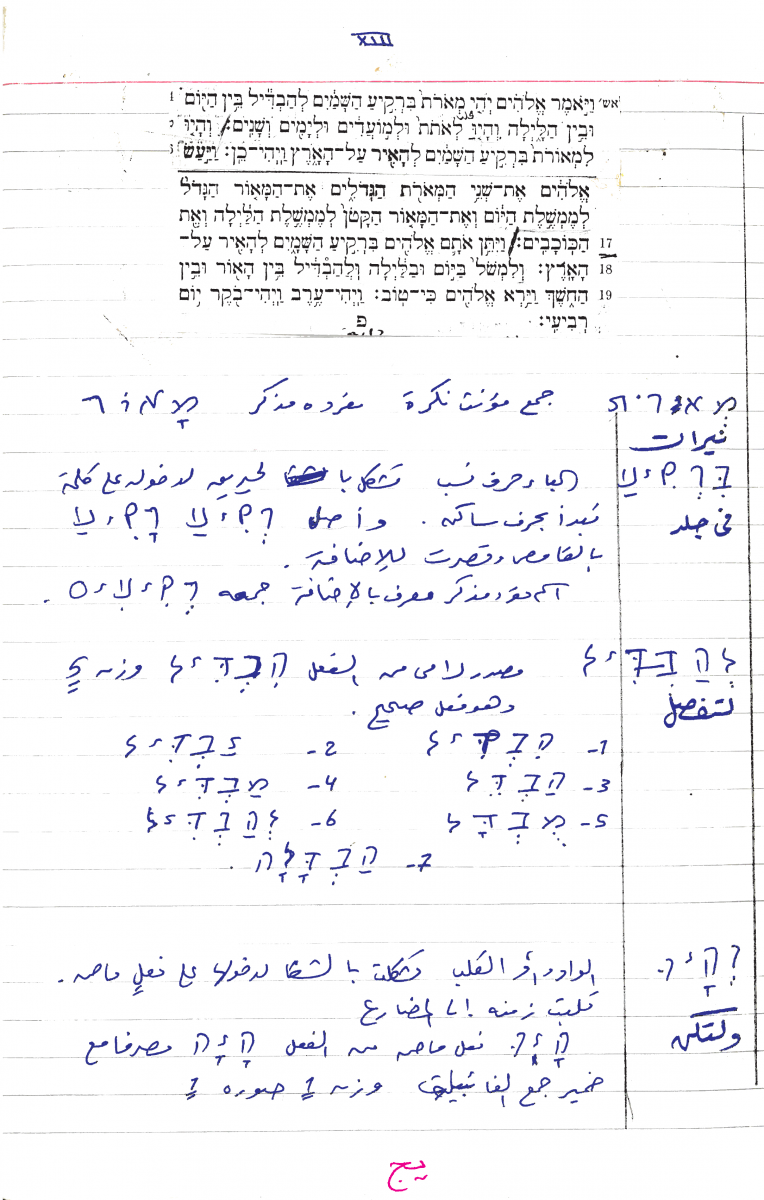 XIII
וַיֹּאמֶר אֱלֹהִים יְהִי מְאֹרֹת בִּרְקִיעַ הַשָּׁמַיִם לְהַבְדִּיל בֵּין הַיּוֹם
וּבֵין הַלָּיְלָה וְהָיוּ לְאֹתֹת וּלְמוֹעֲדִים וּלְיָמִים וְשָׁנִים׃ וְהָיוּ
לִמְאוֹרֹת בִּרְקִיעַ הַשָּׁמַיִם לְהָאִיר עַל־הָאָרֶץ וַיְהִי־כֵן׃ וַיַּעַשׂ
אֱלֹהִים אֶת־שְׁנֵי הַמְּאֹרֹת הַגְּדֹלִים אֶת־הַמָּאוֹר הַגָּדֹל
לְמֶמְשֶׁלֶת הַיּוֹם וְאֶת־הַמָּאוֹר הַקָּטֹן לְמֶמְשֶׁלֶת הַלַּיְלָה וְאֵת
הַכּוֹכָבִים׃ וַיִּתֵּן אֹתָם אֱלֹהִים בִּרְקִיעַ הַשָּׁמָיִם לְהָאִיר עַל־ 17
הָאָרֶץ׃ וְלִמְשֹׁל בַּיּוֹם וּבַלַּיְלָה וּלְהַבְדִּיל בֵּין הָאוֹר וּבֵין 18
הַחֹשֶׁךְ וַיַּרְא אֱלֹהִים כִּי־טוֹב׃ וַיְהִי־עֶרֶב וַיְהִי־בֹקֶר יוֹם 19
רְבִיעִי׃
פ
מְאוֹרוֹת جمع مؤنث نكرة مفرده مذكر מָאוֹר
نيرات
בִּרְקִיעַ الباء حرف نسب تشكل با لحيريق لدخوله على كلمة
في جلد تبدأ بحرف ساكن. وأصل רְקִיעַ רָקִיעַ
بالقامص وقصرت للإضافة.
اسم مفرد مذكر معرف بالإضافة جمعه רְקִיעִים.
לְהַבְדִּיל مصدر لامى من الفعل הִבְדִּיל وزنه
لتفصل وهو فعل صحيح.
1- הִבְדִּיל 2- יַבְדִּיל
3- הַבְדֵּל 4- מַבְדִּיל
5- מֻבְדָּל 6- לְהַבְדִּיל
7- הַבְדָּלָה.
וְהָיוּ الواو واو القلب تشكلت بالشفا لدخولها على فعل ماض.
قلبت زمنه إلى المضارع
ولتكن הָיוּ فعل ماض من الفعل הָיָה مصرف مع
ضمير جمع الغائبين وزنه صوره
يج